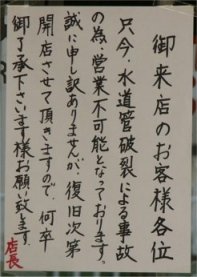 御来店のお客様各位
只今、水道管破裂による事故
の為、営業不可能となっております。
誠に申し訳ありませんが、復旧次第
開店させて頂きますので、何卒
御了承下さいます様お願い致します。
店長